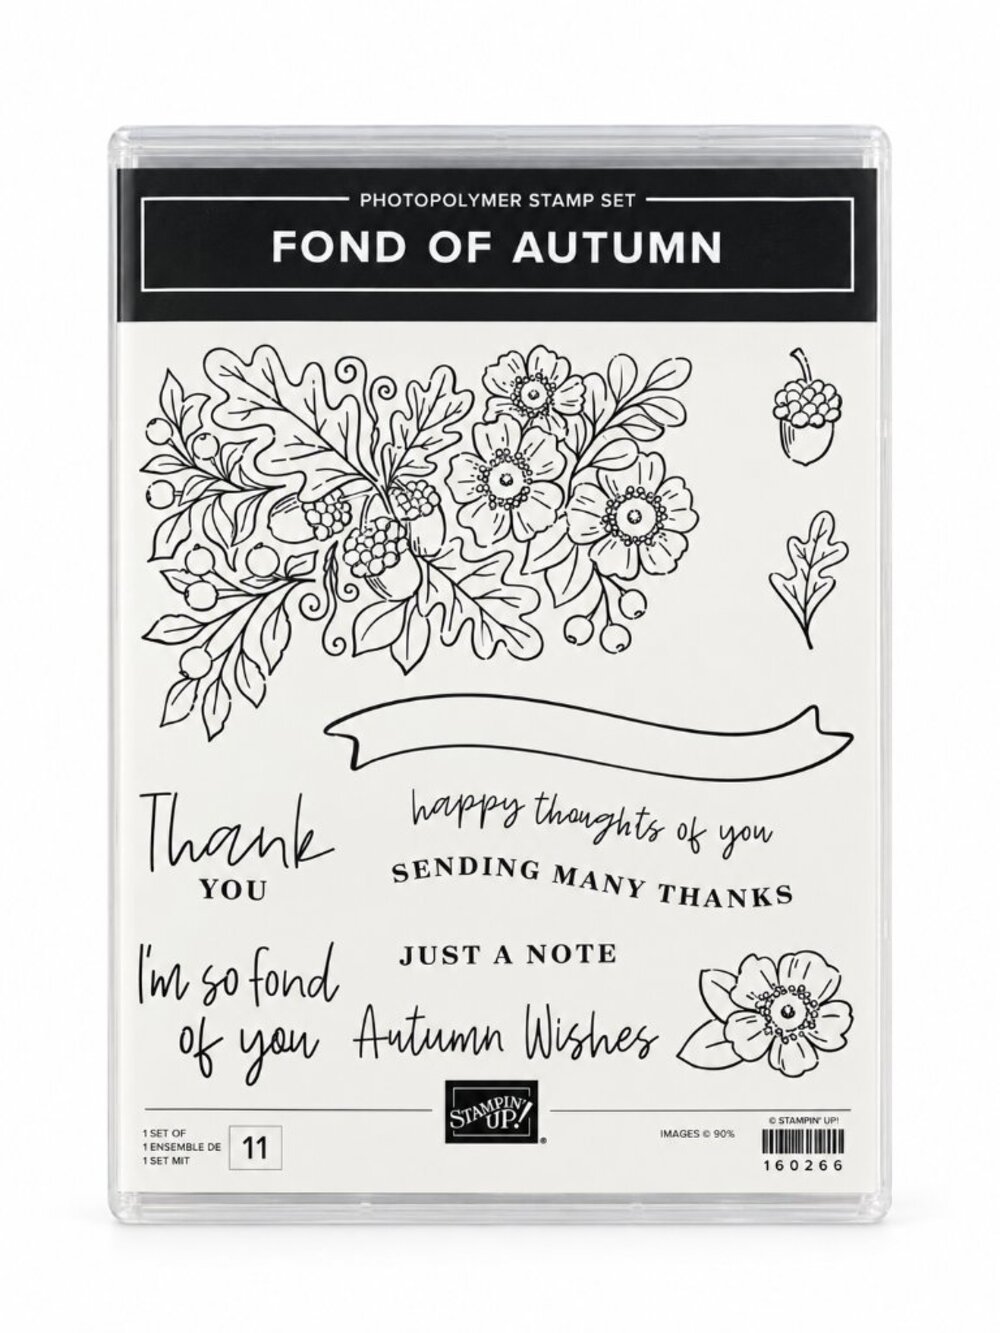 PHOTOPOLYMER STAMP SET
FOND OF AUTUMN
Thank
YOU
happy thoughts of you
SENDING MANY THANKS
JUST A NOTE
I'm so fond
of you
Autumn Wishes
STAMPIN'
UP!®
1 SET OF
1 ENSEMBLE DE
1 SET MIT
11
IMAGES © 90%
© STAMPIN' UP!
160266